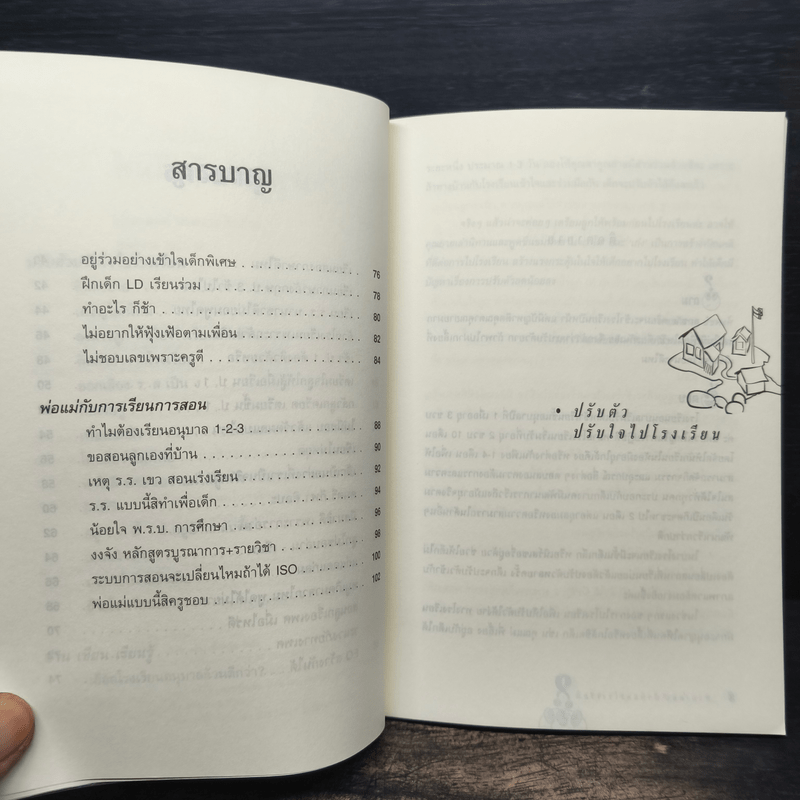 สารบาญ
อยู่ร่วมอย่างเข้าใจเด็กพิเศษ 76
ฝึกเด็ก LD เรียนร่วม 78
ทำอะไร ก็ช้า 80
ไม่อยากให้ฟุ้งเฟ้อตามเพื่อน 82
ไม่ชอบเลขเพราะครูดี 84
พ่อแม่กับการเรียนการสอน
ทำไมต้องเรียนอนุบาล 1-2-3 88
ขอสอนลูกเองที่บ้าน 90
เหตุ ร.ร. เขว สอนเร่งเรียน 92
ร.ร. แบบนี้สิทำเพื่อเด็ก 94
น้อยใจ พ.ร.บ. การศึกษา 96
งงจัง หลักสูตรบูรณาการ+รายวิชา 98
ระบบการสอนจะเปลี่ยนไหมถ้าได้ ISO 100
พ่อแม่แบบนี้สิครูชอบ 102
• ปรับตัว
ปรับใจไปโรงเรียน